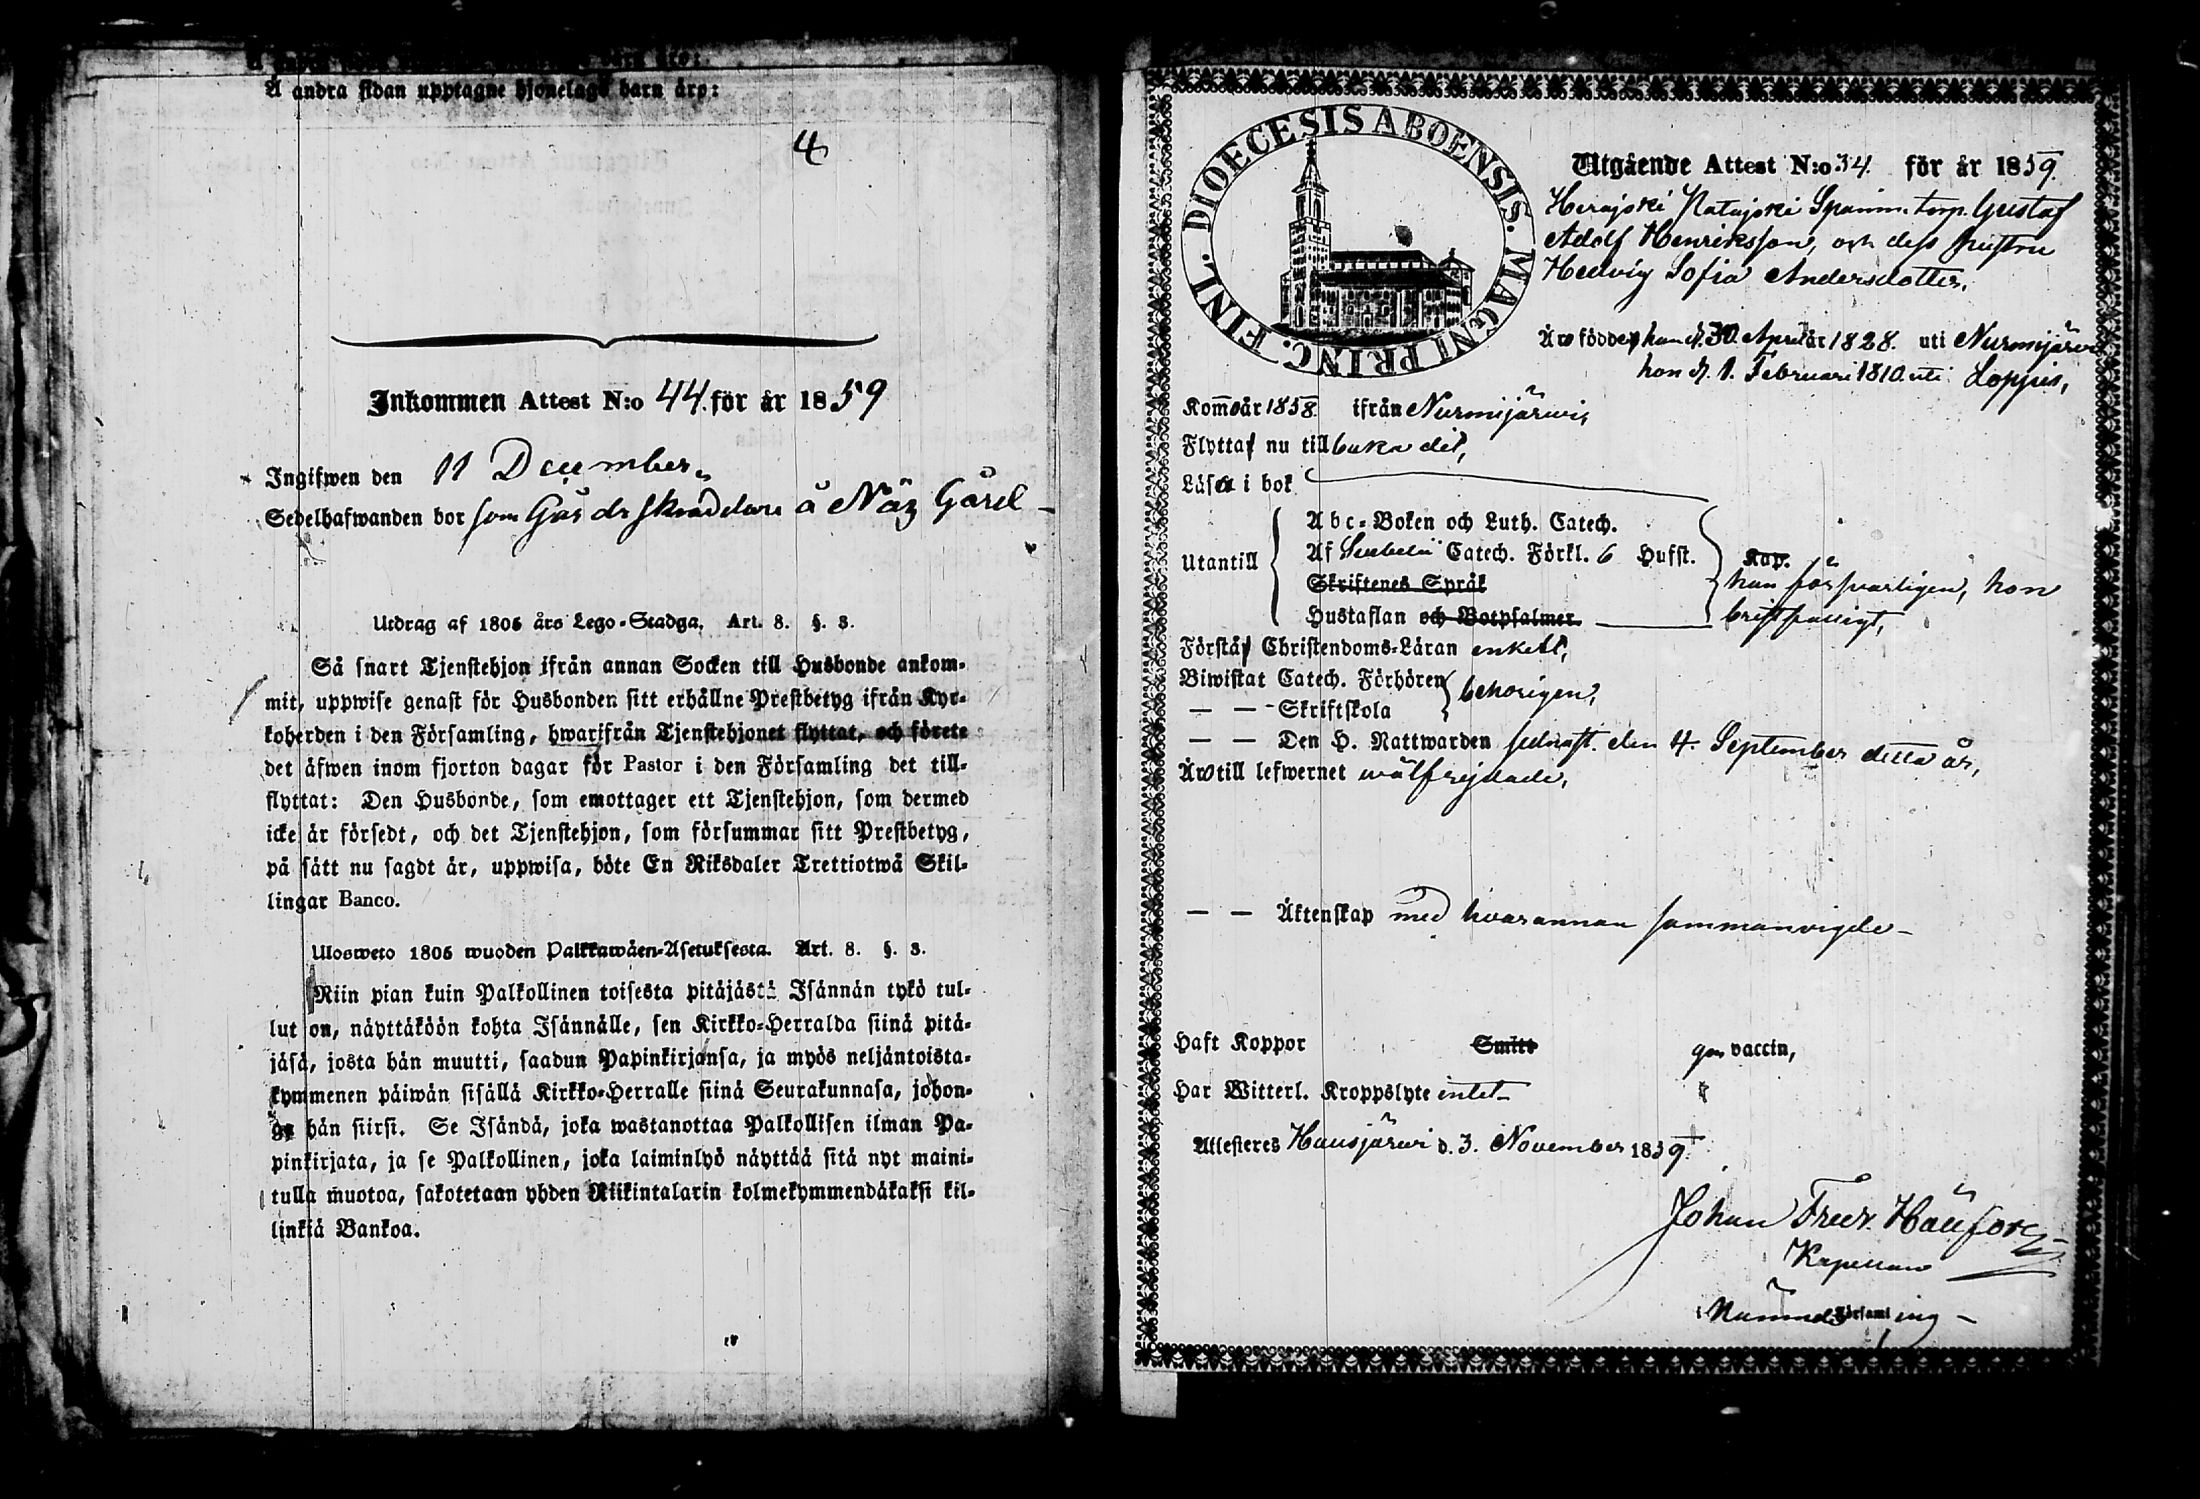 Å andra sidan upptagne hjonelags barn äro:
4
Inkommen Attest N:o 44. för år 1859
Ingifwen den 11 December
Sedelhafwanden bor som Gårds skräddare å Näs Gård
Utdrag af 1805 års Lego-Stadga. Art. 8. §. 3.
Så snart Tjenstehjon ifrån annan Socken till Husbonde ankom-
mit, uppwise genast för Husbonden sitt erhållne Prestbetyg ifrån Kyr-
koherden i den Församling, hwarifrån Tjenstehjonet flyttat, och förete
det äfwen inom fjorton dagar för Pastor i den Församling det till-
flyttat: Den Husbonde, som emottager ett Tjenstehjon, som dermed
icke är försedt, och det Tjenstehjon, som försummar sitt Prestbetyg,
på sätt nu sagdt är, uppwisa, böte En Riksdaler Trettiotwå Skil-
lingar Banco.
Ulosweto 1805 wuoden Palkkawäen-Asetuksesta. Art. 8. §. 3.
Niin pian kuin Palkollinen toisesta pitäjästä Isännän tykö tul-
lut on, näyttäköön kohta Isännälle, sen Kirkko-Herralda siinä pitä-
jäsä, josta hän muutti, saadun Papinkirjansa, ja myös neljäntoista-
kymmenen päiwän sisällä Kirkko-Herralle siinä Seurakunnasa, johon-
ga hän siirsi. Se Isändä, joka wastanottaa Palkollisen ilman Pa-
pinkirjata, ja se Palkollinen, joka laiminlyö näyttää sitä nyt maini-
tulla muotoa, sakotetaan yhden Riikintalarin kolmekymmendäkaksi kil-
linkiä Bankoa.
DIOECESIS ABOENSIS. MAGNI PRINC. FINL.
Utgående Attest N:o 34. för år 1859.
Herajoki Ratajoki Spanm. torp. Gustaf
Adolf Henriksson, och dess hustru
Hedvig Sofia Andersdotter,
Äro födde, han d. 30 April år 1828. uti Nurmijärvi
hon d. 1. Februari 1810 uti Loppis,
Komo år 1858. ifrån Nurmijärvi,
Flytta nu till baka dit,
Läsa i bok
Utantill
Abc-Boken och Luth. Catech.
Af Sebelii Catech. Förkl. 6 Hufst.
Kap.
Skriftenes Språk
Hustaflan och Botpsalmer.
han försvarligen, hon
bristfälligt,
Förstå Christendoms-Läran enkelt,
Biwistat Catech. Förhören
— — Skriftskola
behörigen,
— — Den H. Nattwarden sednast den 4. September detta år,
Äro till lefwernet wälfrejdade,
— — Äktenskap med hvarannan sammanvigde
Haft Koppor Smitt gm vaccin,
Har Witterl. Kroppslyte intet
Attesteras Hausjärvi d. 3. November 1859.
Johan Fredr.
Kapellan
i Församling